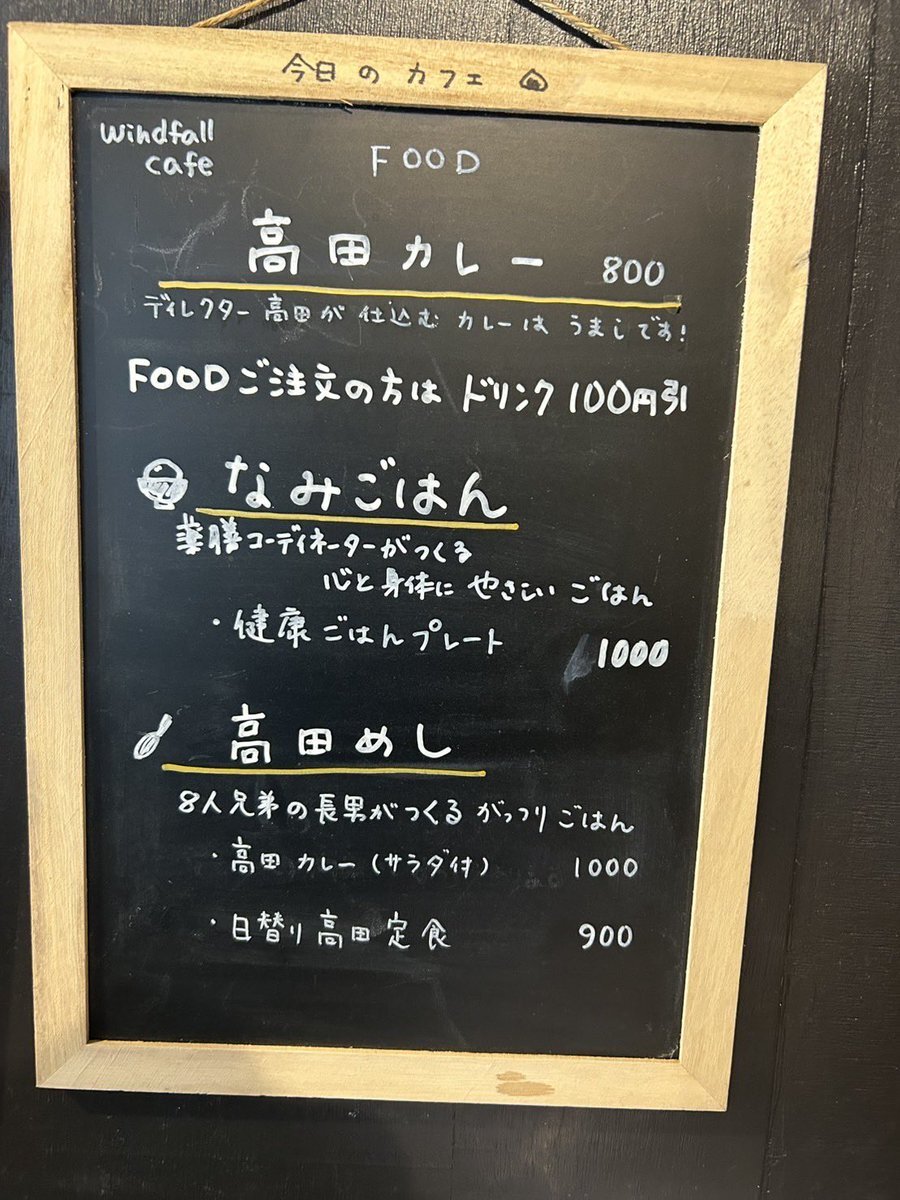 今日のカフェ
windfall
cafe
FOOD
高田カレー 800
ディレクター高田が仕込むカレーはうましです!
FOODご注文の方はドリンク100円引
なみごはん
薬膳コーディネーターがつくる
心と身体にやさしいごはん
・健康ごはんプレート 1000
高田めし
8人兄弟の長男がつくるがっつりごはん
・高田カレー(サラダ付) 1000
・日替り高田定食 900